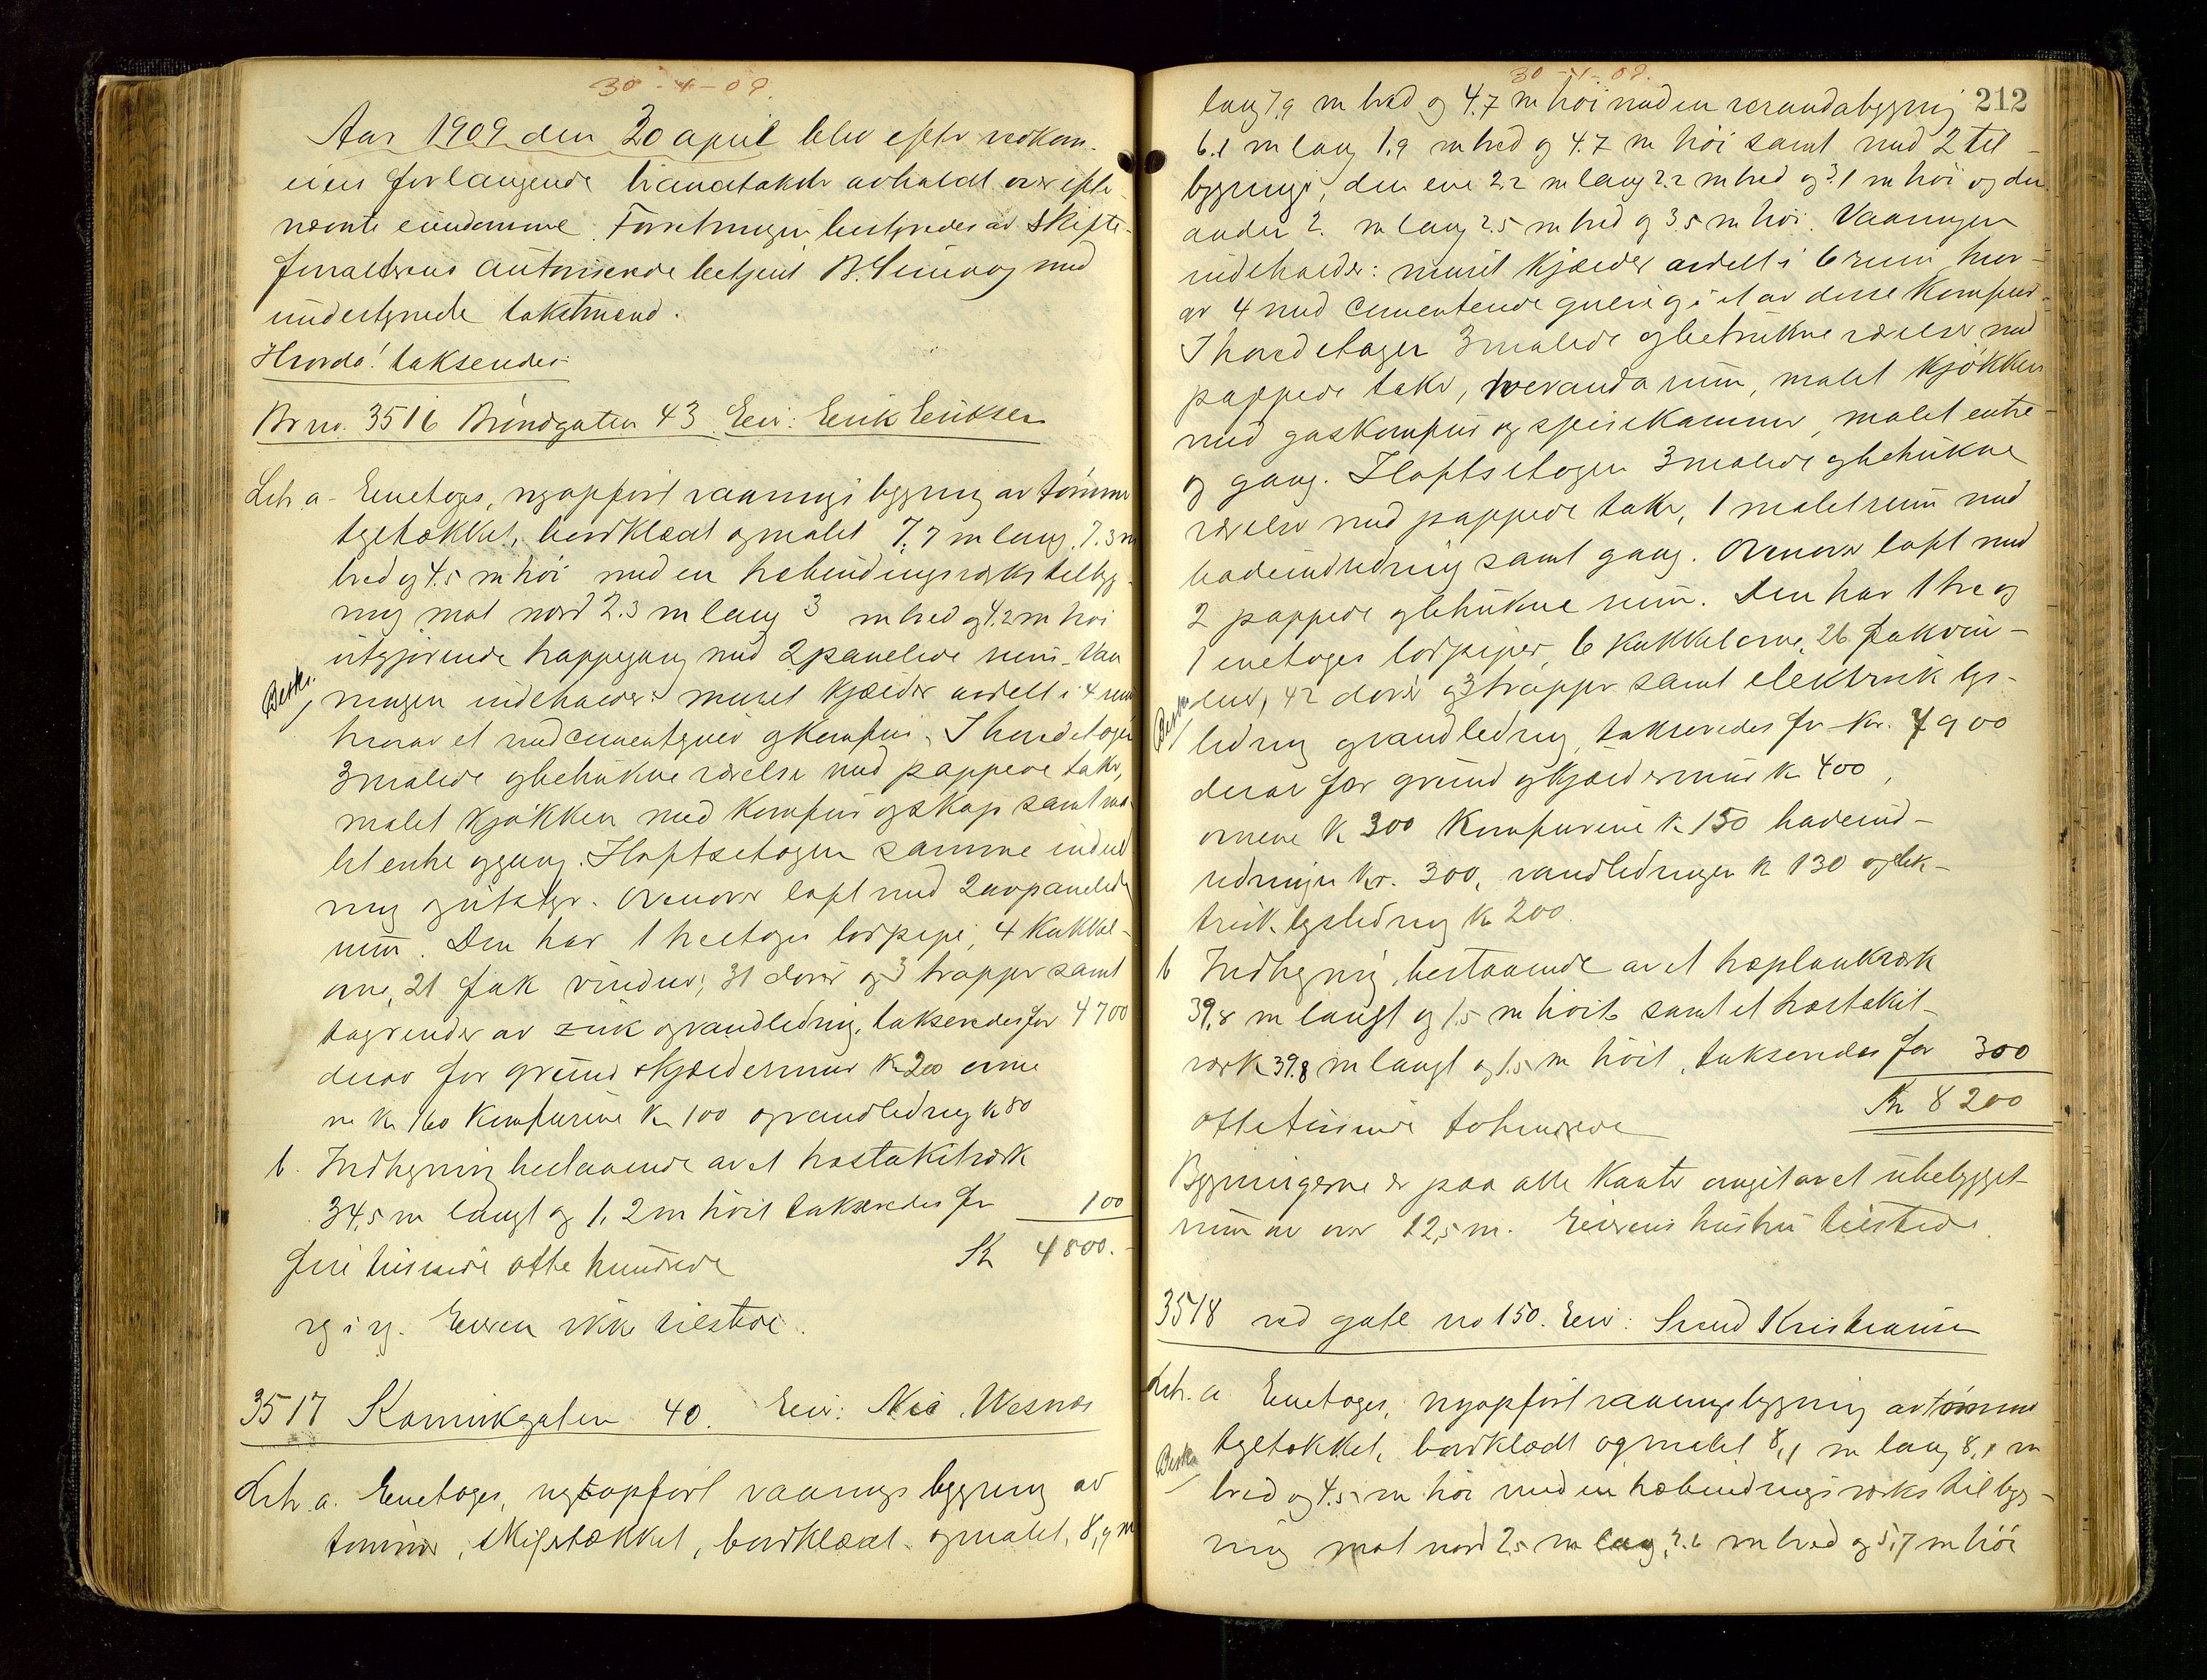 30-4-09.
Aar 1909 den 20 april blev efter vedkom-
enes forlangende brandtakst avholdt over efter-
nevnte eiendomme. Forretningen bestyredes av skifte-
forvalterens autoriserede betjent B. med
undertegnede takstmænd.
Hvorda! takseredes:
Br no. 3516 Brøndgaten 43. Eier: Eerik Eeriksen
Litr a - Eenetages, nyopført vaanings bygning av tømmer
tegltækket, bordklædt og malet 7,7 m lang, 7.3 m
bred og 4.5 m høi med en træbindingsverks tilbyg-
ning mot nord 2.3 m lang 3 m bred og 4.2 m høi
utgjørende trappegang med 2 panelede rum. Vaa
Beskr.
ningen indeholder: muret kjælder avdelt i 4 rum
hvorav et med cementgulv og komfur. I hovedetagen
3 malede og betrukne værelser med pappede take,
malet kjøkken med komfur og skap samt ma-
let entre og gang. I loftsetagen samme indred
ning og utstyr. Ovenover loft med 2 avpanelede
rum. Den har 1 treetages borpipe, 4 kakkel-
ovne, 21 fak vinduer, 31 dører og 3 trapper samt
tagrender av zink og vandledning, takseredes for 4700
derav for grund & kjældermur kr 200 ovne
ne kr 160 komfurene kr 100 og vandledning kr 80
b. Indhegning bestaaende av et træstakitværk
34,5 m langt og 1,2 m høit takseredes for 100
fire tusinde otte hundrede Kr 4800.-
 Eieren ikke tilstede.
3517 Kannikgaten 40. Eier: Nic. Wesnes
Litr a. Eenetages, nyopført vaanings bygning av
tømmer, skifertækket, bordklædt og malet, 8,9 m
30-4-09.
212
lang 7,9 m bred og 4.7 m høi med en verandabygning
6.1 m lang 1.9 m bred og 4.7 m høi samt med 2 til-
bygninge, den ene 2.2 m lang 2.2 m bred og 3.1 m høi og den
anden 2. m lang 2.5 m bred og 3.5 m høi. Vaaningen
indeholder: muret kjælder avdelt i 6 rum hvor-
av 4 med cementerede gulv og i et av disse komfur.
I hovedetagen 3 malede og betrukne værelser med
pappede take, verandarum, malet kjøkken
med gaskomfur og spisekammer, malet entre
og gang. I loftsetagen 3 malede og betrukne
værelser med pappede take, 1 malet rum med
badeindredning samt gang. Ovenover loft med
2 pappede og betrukne rum. Den har 1 tre og
1 enetages borpiper, 6 kakkelovne, 26 fak vin-
duer, 42 dører og 3 trapper samt elektrisk lys-
Beskr.
ledning og vandledning, takseredes for kr. 7900
derav for grund og kjældermur kr 400,
ovnene kr 300 komfurene kr 150 badeind-
redningen kr. 300, vandledningen kr 130 og elek-
trisk lysledning kr 200.
b Indhegning, bestaaende av et træplankeværk
39,8 m langt og 1,5 m høit samt et træstakit-
verk 39.8 m langt og 1,5 m høit, takseredes for 300
otte tusinde tohundrede Kr 8200
Bygningerne er paa alle kanter omgit av et ubebygget
rum av over 12,5 m. Eierens hustru tilstede.
3518 ved gate no 150. Eier: Svend Kristiansen
Litr. a Eenetages, nyopført vaaningsbygning av tømmer
tegltækket, bordklædt og malet 8,1 m lang 8,1 m
Beskr.
bred og 4.5 m høi med en træbindingsverks tilbyg-
ning mot nord 2,5 m lang, 2.6 m bred og 5,7 m høi